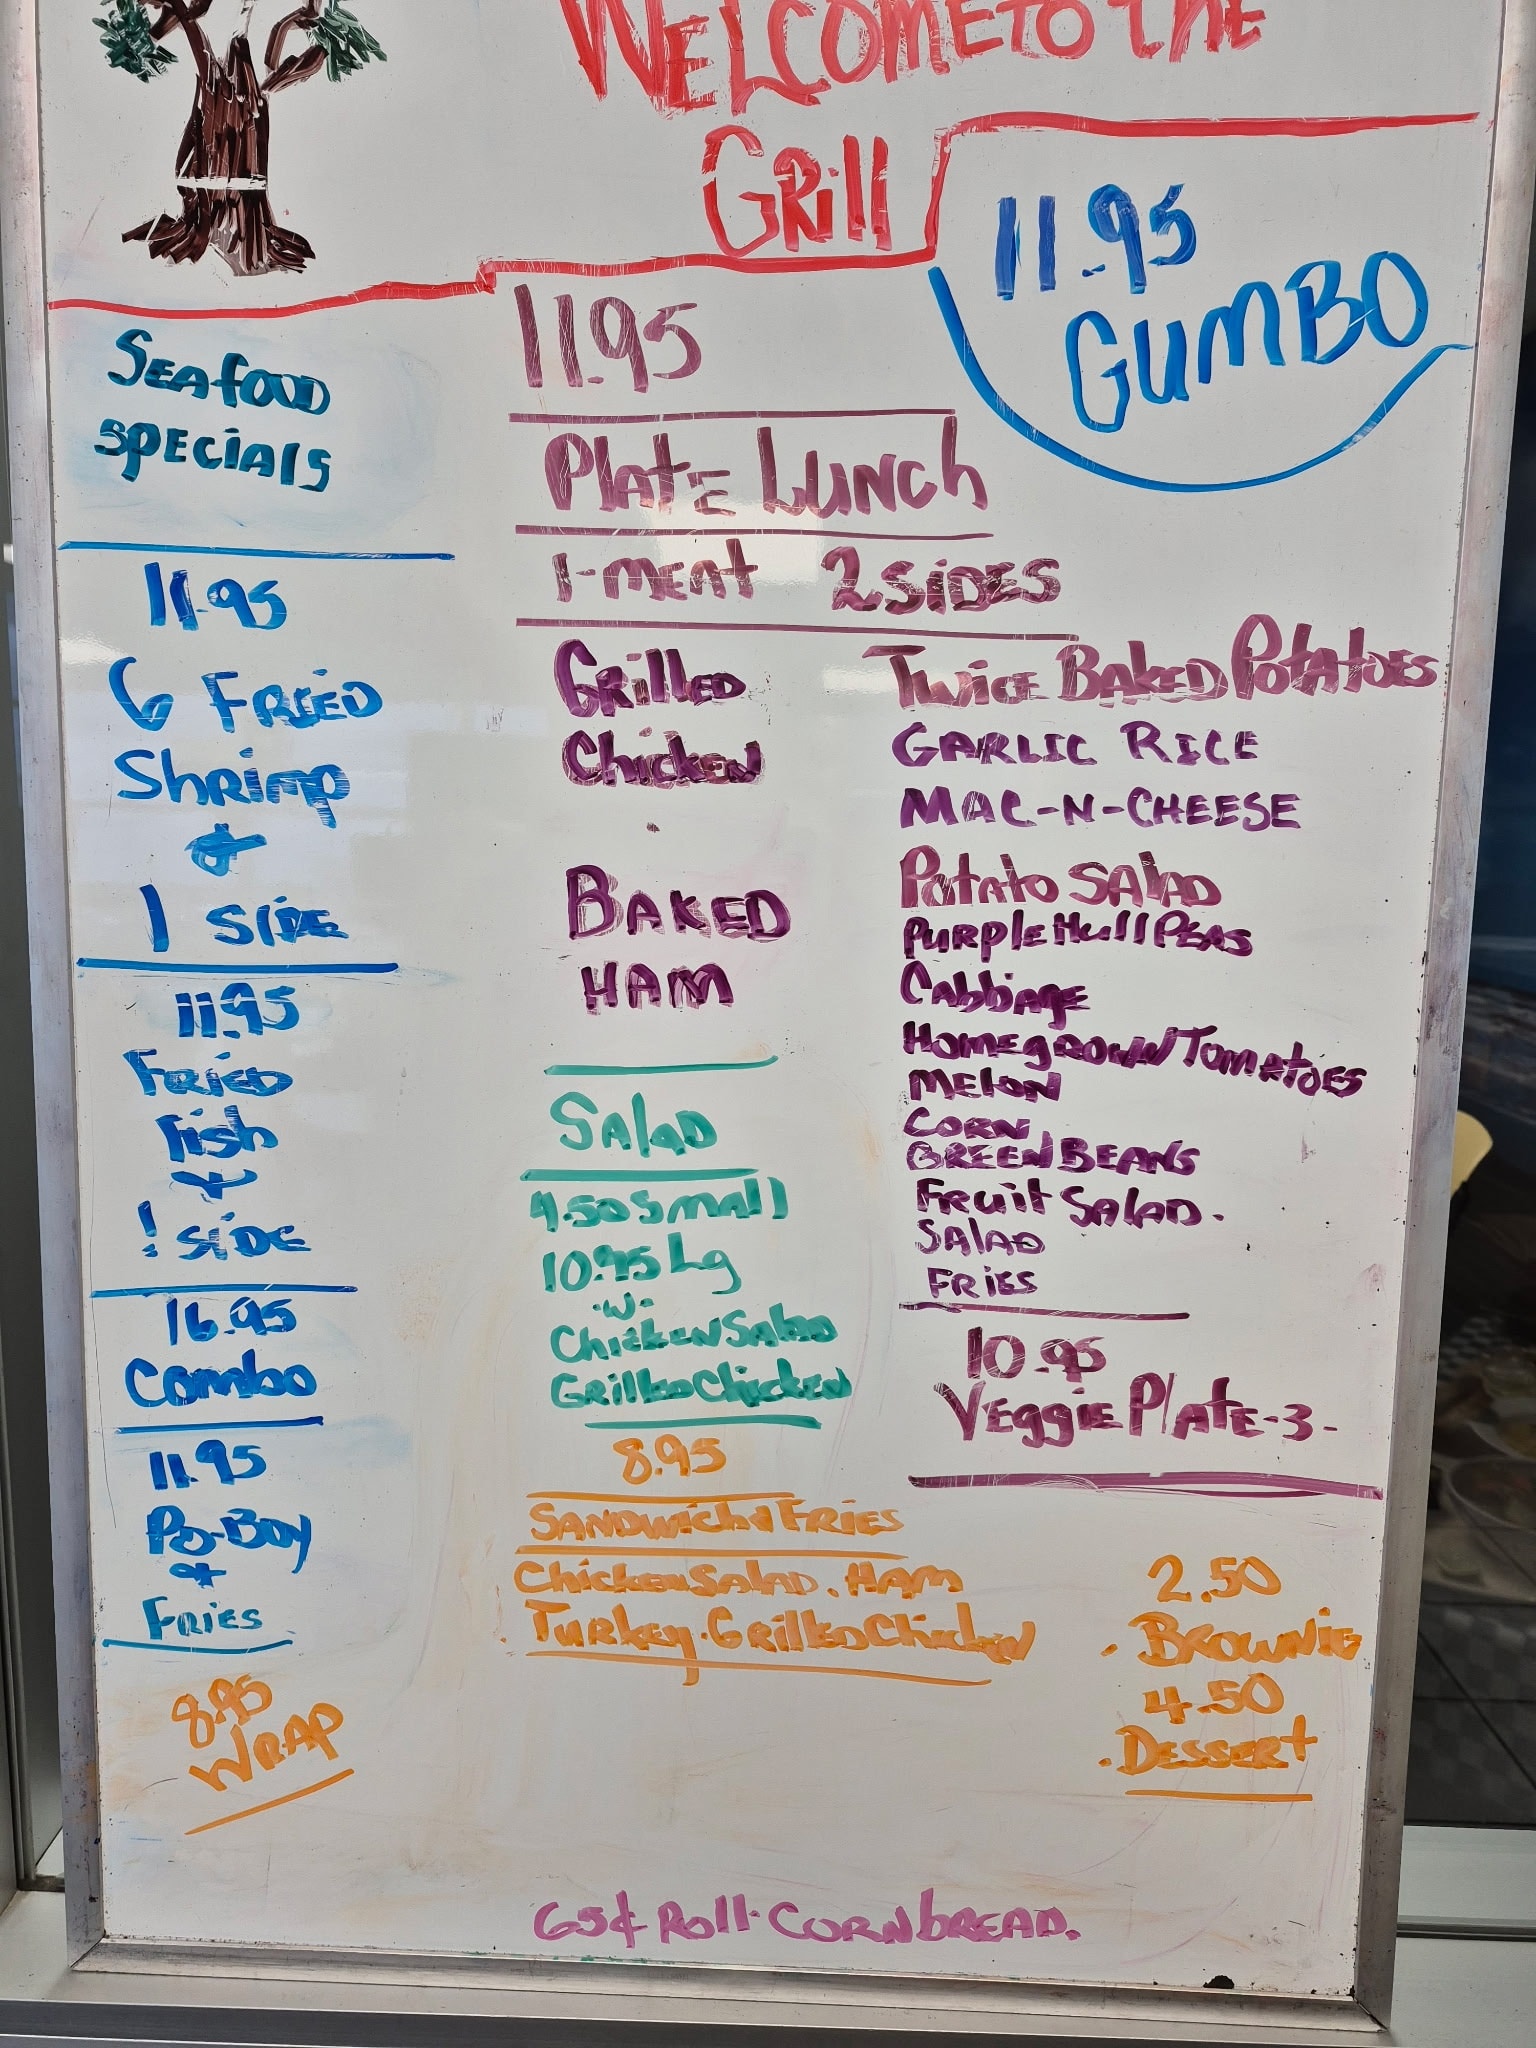 WELCOME TO THE
GRill
11.95
GUMBO
SEAfOOD
SPECIAlS
11.95
6 FRIED
Shrimp
&
1 SIDE
11.95
FRIED
Fish
&
1 SIDE
16.95
Combo
11.95
Po-Boy
&
FRIES
8.95
WRAP
11.95
PlatE LUNCh
1-MEAT 2 SIDES
GRillED
ChickEN
BAKED
HAM
TwicE BAKED POtAtOES
GARLIC RICE
MAC-N-CHEESE
Potato SAlAD
PURPlE Hull PEAS
CAbbAgE
HOMEgROWN TOMATOES
MElON
CORN
GREEN BEANS
FRuit SAlAD.
SAlAD
FRIES
10.95
VEggiE PlATE -3-
SAlAD
4.50 Small
10.95 Lg
.w.
ChickEN SAlAD
GRillED ChickEN
8.95
SANDWich & FRIES
ChickEN SAlAD. HAM
TURkEy. GRillED ChickEN
2.50
. BROWNiE
4.50
. DESSERt
65¢ Roll. CORNbREAD.